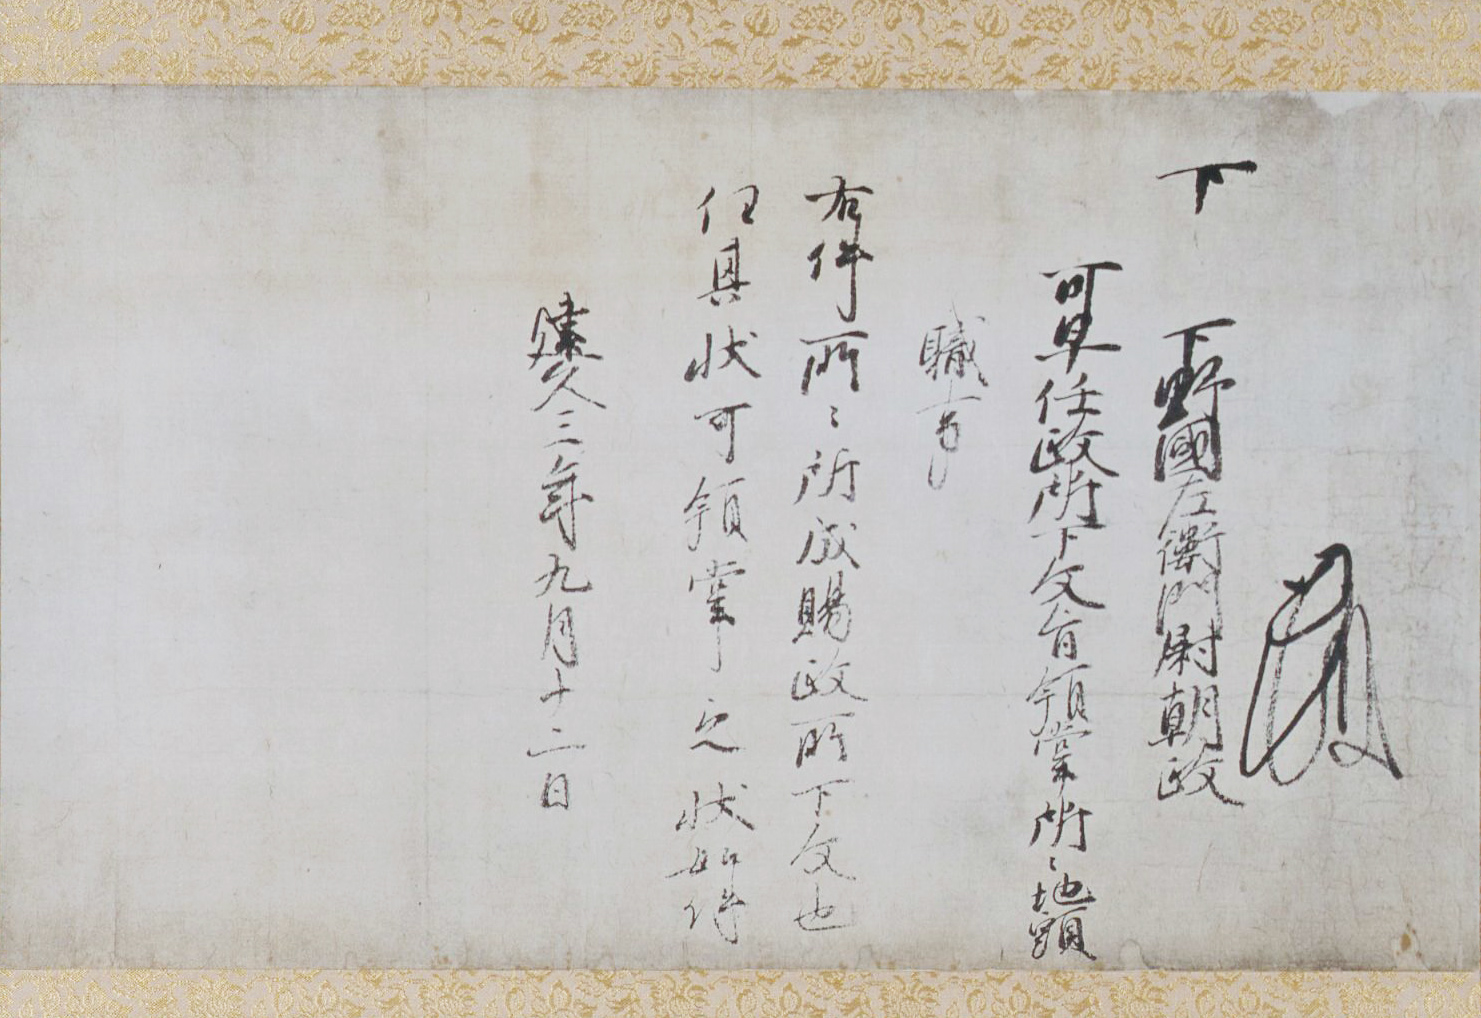 下　下野國左衛門尉朝政
可早任政所下文旨領掌所ミ地頭
職事
右件所ミ所成賜政所下文也
任其状可領掌之状如件
建久三年九月十二日